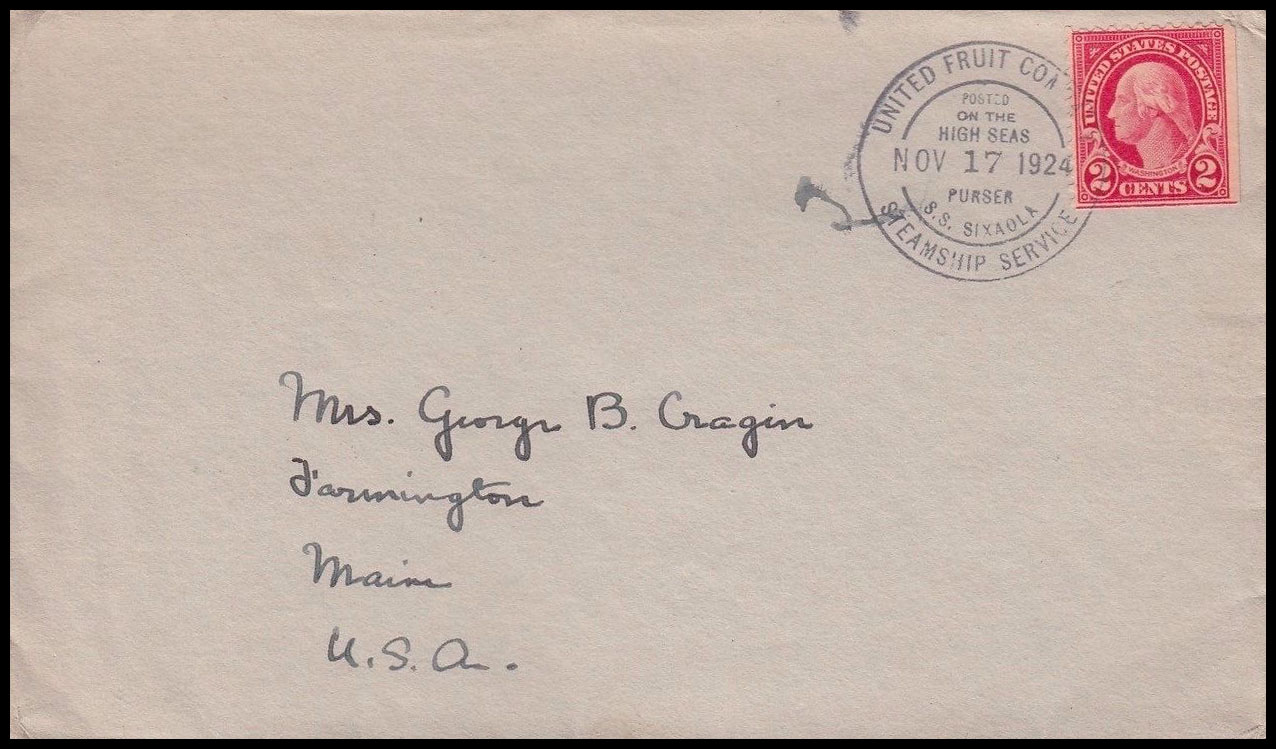 UNITED FRUIT
STEAMSHIP SERVICE
POSTED
ON THE
HIGH SEAS
NOV 17 1924
PURSER
S.S. SIXAOLA
UNITED STATES POSTAGE
WASHINGTON
2 CENTS 2
Mrs. George B. Cragin
Farmington
Maine
U.S.A.